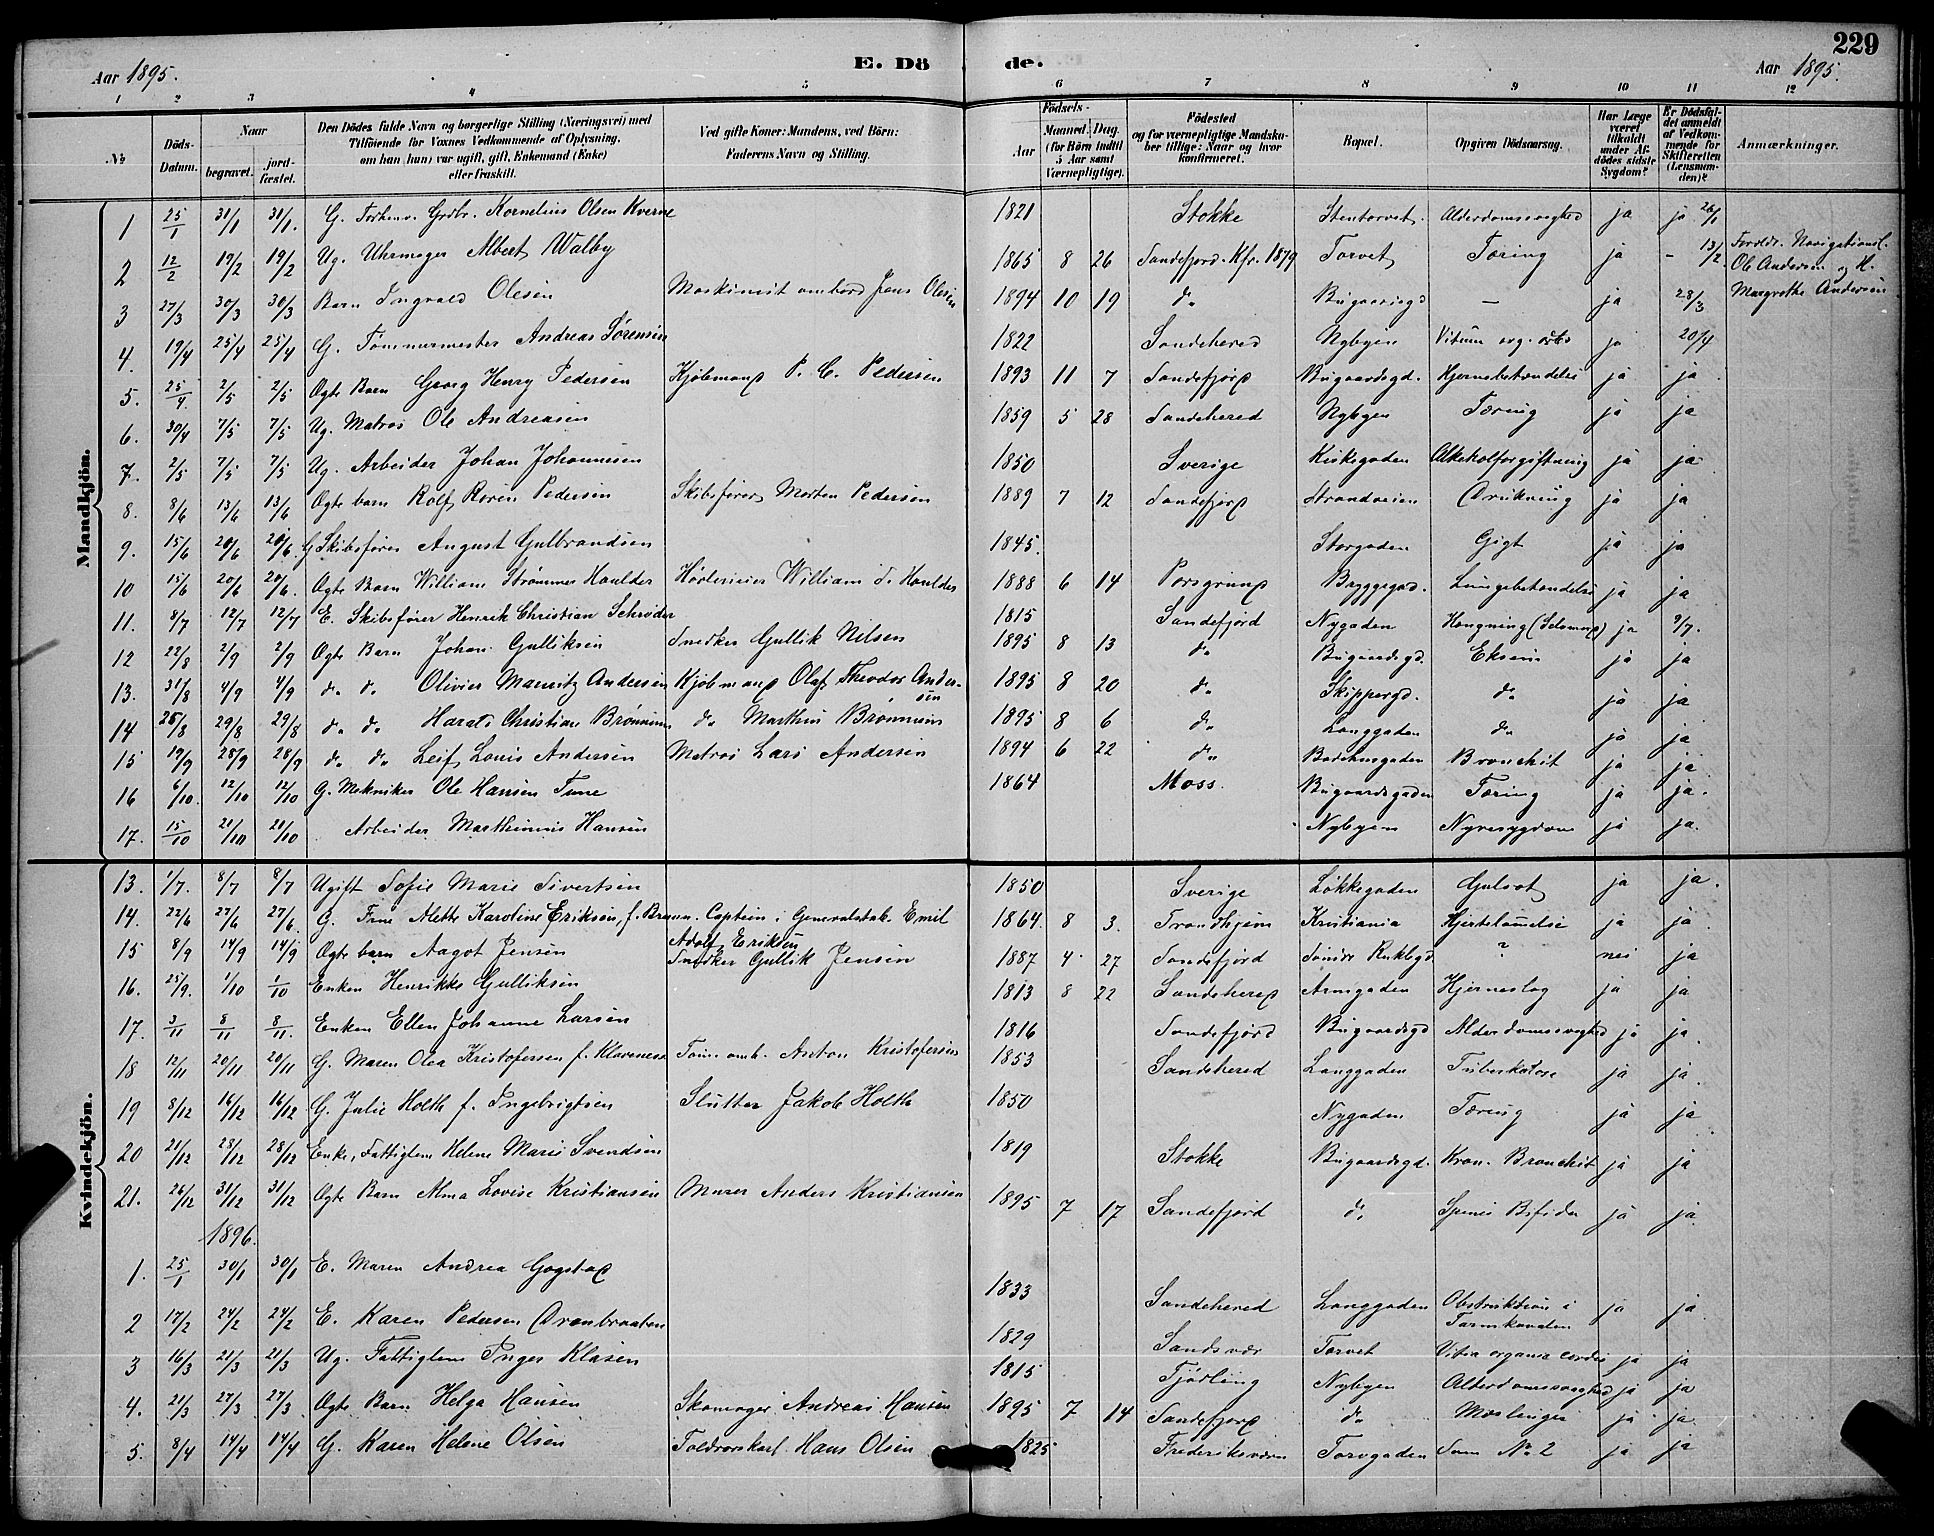 229
Aar 1895.
E. Dö
de.
Aar 1895.
1 2 3 4 5 6 7 8 9 10 11 12
No
Döds-
Datum.
Naar
begravet.
jord-
fæstet.
Den Dödes fulde Navn og borgerlige Stilling (Næringsvei) med
Tilföiende for Voxnes Vedkommende af Oplysning,
om han (hun) var ugift, gift, Enkemand (Enke)
eller fraskilt.
Ved gifte Koner: Mandens, ved Börn:
Faderens Navn og Stilling.
Födsels-
Aar
Maaned. Dag.
(for Börn indtil
5 Aar samt
Værnepligtige).
Födested
og for værnepligtige Mandska-
ber tillige: Naar og hvor
konfirmeret.
Bopæl.
Opgiven Dödsaarsag.
Har Læge
været
tilkaldt
under Af-
dödes sidste
Sygdom?
Er Dödsfal-
det anmeldt
af Vedkom-
mende for
Skifteretten
(Lensman-
den)?
Anmærkninger.
Mandkjön.
1 25/1 31/1 31/1. G. Forhenv. Grdbr. Kornelius Olsen Kverne 1821 Stokke Stentorvet. Alderdomssvaghed ja ja 26/1
2 12/2 19/2 19/2 Ug. Uhrmager Albert Walby 1865 8 26 Sandefjord. Kfr. 1879 Torvet Tæring ja - 13/2 Foreldr. Navigationsl.
Ole Andersen og H.
Margrethe Andersen
3 27/3 30/3 30/3 Barn Ingvald Olesen Maskinist ombord Jens Olesen 1894 10 19 do Bugaardsgd — ja 28/3
4. 19/4 25/4 25/4 G. Tømmermester Andreas Sørensen 1822 Sandehered Nybyen Vitium org. cordis ja 20/4
5. 25/4. 2/5 2/5 Ægte Barn Georg Henry Pedersen Kjøbmand P. C. Pedersen 1893 11 7 Sandefjord Bugaardsgd. Hjernebetændelse ja ja
6. 30/4 7/5 7/5 Ug. Matros Ole Andreasen 1859 5 28 Sandehered Nybyen Tæring ja ja
7. 2/5 7/5 7/5 Ug. Arbeider Johan Johannesen 1850 Sverige Kirkegaden Alkoholforgiftning ja ja
8. 8/6 13/6 13/6 Ægte barn Rolf Roren Pedersen Skibsfører Morten Pedersen 1889 7 12 Sandefjord Strandveien Drukning ja ja
9. 15/6 20/6 20/6. G Skibsfører August Gulbrandsen 1845. Storgaden Gigt ja ja
10 15/6 20/6 20/6. Ægte Barn William Strømmer Houlder William S. Houlder 1888 6 14 Porsgrund Bryggegad. Lungebetændelse ja ja
11. 8/7 12/7 12/7 E. Skibsfører Henrik Christian Schrøder 1815 Sandefjord Nygaden Hængning (Selvmord) ja 9/7.
12 22/8 2/9 2/9 Ægte Barn Johan Gulliksen Snedker Gullik Nilsen 1895 8 13 do Bugaardsgd. Eksem ja ja
13. 31/8 4/9 4/9 do do Olivier Mauritz Andersen Kjøbmand Olaf Theodor Ander-
sen 1895 8 20 do Skippergd. do ja ja
14 25/8 29/8 29/8 do do Harald Christian Brønnum do Marthin Brønnum 1895 8 6 do Langgaden do ja ja
15 19/9 28/9 28/9 do do Leif Louis Andersen Matros Lars Andersen 1894 6 22 do Badehusgaden Bronchit ja ja
16 6/10. 12/10 12/10 G. Mekniker Ole Hansen Tune 1864 Moss. Bugaardsgaden Tæring ja ja.
17. 15/10 21/10 21/10 Arbeider Marthinius Hansen Nybyen Nyresygdom ja ja.
Kvindekjön.
13. 1/7. 8/7 8/7 Ugift Sofie Marie Sivertsen 1850 Sverige Løkkegaden Gulsot ja ja.
14. 22/6 27/6 27/6. G. Frue Mette Karoline Eriksen, f. Braun. Captein i Generalstab. Emil
Adolf Eriksen 1864. 8 3. Trondhjem Kristiania Hjertelamelse ja ja
15 8/9 14/9 14/9 Ægte barn Aagot Jensen Snedker Gullik Jensen 1887 4 27 Sandefjord Søndre ? nei ja
16. 25/9. 1/10 1/10 Enken Henrikke Gulliksen 1813 8 22 Sandehered Armgaden Hjerneslag ja ja
17. 3/11 8/11 8/11. Enken Ellen Johanne Larsen 1816 Sandefjord Bugaardsgd Alderdomssvaghed ja ja.
18 12/11 20/11 20/11 G. Maren Olea Kristofersen f. Klavenæss Tømm. omb. Anton Kristofersen 1853 Sandehered Langgaden Tuberkolose ja ja.
19 8/12 16/12 16/12 G. Julie Holth f. Ingebrigtsen Slutter Jakob Holth 1850 Nygaden Tæring ja ja
20 21/12 28/12 28/12 Enke, Fattiglem Helene Marie Svendsen 1819 Stokke Bugaardsgd. Kron. Bronchit ja ja
21. 26/12 31/12 31/12 Ægte Barn Alma Lovise Kristiansen Murer Anders Kristiansen 1895 7 17 Sandefjord do Spina Bifida ja ja
1896.
1. 25/1 30/1 30/1 E. Maren Andrea Gogstad 1833 Sandehered Langgaden Obstruktion i
Tarmkanalen ja ja
2 17/2 24/2 24/2 E. Karen Pedersen Ormbraaten 1829 Sandsvær Torvet Vitia organa cordis ja ja
3 16/3 21/3 21/3 Ug. Fattiglem Inger Klasen 1815 Fjørling Nybyen Alderdomssvaghed ja ja
4. 21/3 27/3 27/3 Ægte Barn Helga Hansen Skomager Andreas Hansen 1895 7 14 Sandefjord do Mæslinger ja ja.
5. 8/4 14/4 14/4 G. Karen Helene Olsen Toldrorskarl Hans Olsen 1825 Frederiksværn Torvgaden Som No 2 ja ja